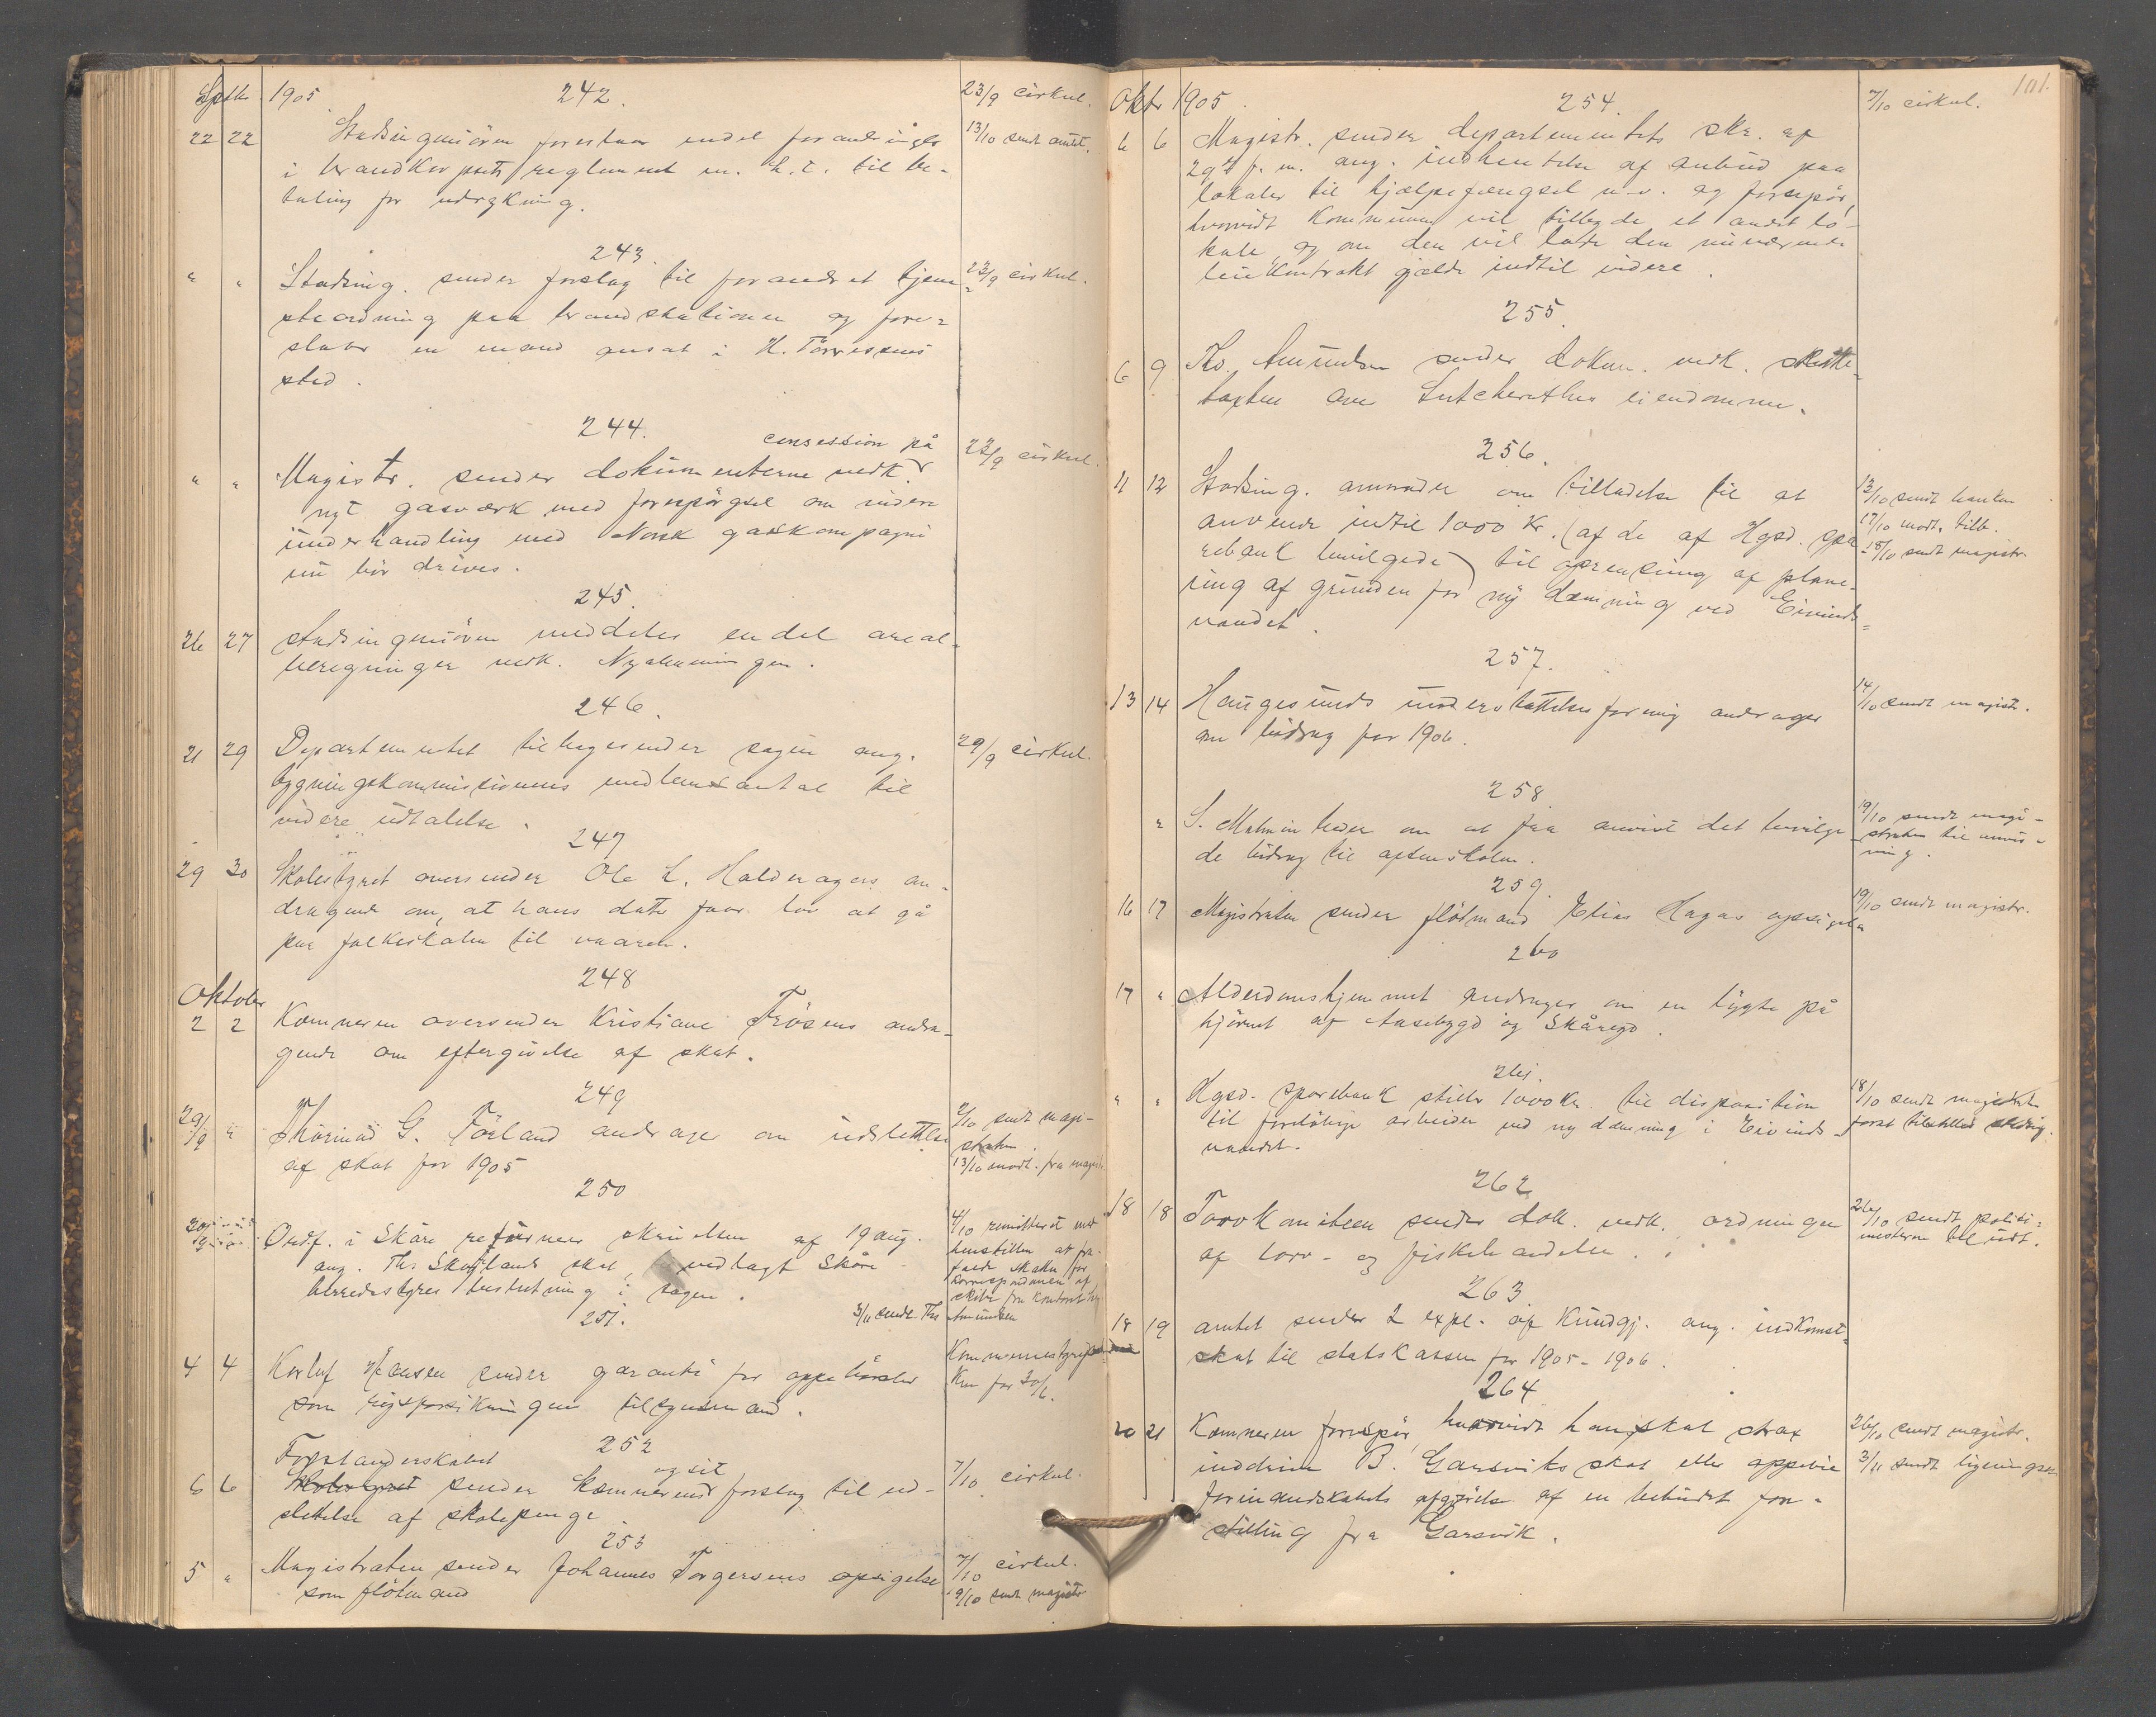 Septbr 1905 242. 23/9 cirkul.
22 22 Stadsingeniøren foreslaar endel forandringer 13/10 sendt amtet.
i brandkorpsets reglement m. h. t. til be-
taling for udrykning.
243.
" " Stadsing. sender forslag til forandret tjene- 23/9 cirkul.
steordning paa brandstationen og fore-
slaar en mand ansat i H. Tørresens
sted.
244. consession på
" " Magistr. sender dokumenterne vedk. 22/9 cirkul.
nyt gasværk med forespørgsel om videre
underhandling med Norsk gaskompagni
nu bør drives.
245.
26 27 Stadsingeniøren meddeler endel areal-
beregninger vedk.
246.
21 29 Departementet tilbagesender sagen ang. 29/9 cirkul.
bygningskommissionens medlemsantal til
videre udtalelse.
247
29 30 Skolestyret oversender Ole L. Halderagers an-
dragende om, at hans datter faar lov at gå
paa folkeskolen til vaaren.
248
Oktober
2 2 Kæmneren oversender Kristiane Frøsens andra-
gende om eftergivelse af skat.
249
29/9 " G. Førland andrager om udslettelse 2/10 sendt magi-
af skat for 1905 straten.
13/10 modt. fra magistr.
250
30/9 Ordf. i Skåre returnerer skrivelsen af 19 aug. 4/10 remitteret med
ang. Th. Skogland skat, vedlagt Skåre henstillen at fra-
herredsstyres beslutning i sagen. falde skatten for
251. 3/11 sendt Ths Amundsen
4 4 Karluf Hansen sender garanti for oppebørsler Kommunestyre
som tilsynsmand. Kun for 30/6.
252
Forstanderskabet
6 6 Skolestyret sender kæmnerens og sit forslag til ud- 7/10 cirkul.
slettelse af skolepenge.
253
5 " Magistraten sender Johannes Torgersens opsigelse 7/10 cirkul.
som fløtmand 19/10 sendt magistr.
101.
Oktbr 1905. 254. 7/10 cirkul.
6 6 Magistr. sender departementets skr. af
29de f. m. ang. indhentelse af anbud paa
lokaler til hjælpefængsel m.v. og forespør,
hvorvidt kommunen vil tilbyde et andet lo-
kale, og om den vil lade den nuværende
leiekontrakt gjælde indtil videre.
255.
6 9 Ths. Amundsen sender dokum. vedk. skatte-
taxten over eiendomme.
256.
11 12 Stadsing. anmoder om tilladelse til at 13/10 sendt banken
anvende indtil 1000 kr. (af de af Hgsd. spa- 17/10 modt. tilb.
rebank bevilgede) til oprensning af plane- 18/10 sendt magistr.
ring af grunden for ny dæmning ved Eivinds-
vandet.
257.
13 14 Haugesunds understøttelsesforening andrager 14/10 sendt magistr.
om bidrag for 1906.
258
" S. Malmin beder om at faa anvist det bevilge- 19/10 sendt magi-
de bidrag til aftenskolen. straten til anvis-
ning.
259.
16 17 Magistraten sender fløtmand Elias Hagas opsigelse 19/10 sendt magistr.
260
17 " Alderdomshjemmet andrager om en lygte på
hjørnet af Aasebygd og Skåregd.
261.
" " Hgsd. sparebank stiller 1000 kr. til disposition 18/10 sendt magistraten
til foreløbige arbeider ved ny dæmning i Eivinds- først tilstillet stadsing.
vandet.
262
18 18 Torvkomiteen sender dok. vedk. ordningen 26/10 sendt politi-
af torv- og fiskehandelen. mesteren til udt.
263
18 19 Amtet sender 2 expl. af kundgj. ang. indkomst-
skat til statskassen for 1905-1906.
264
20 21 Kæmneren forespør, hvorvidt han skal strax 26/10 sendt magistr.
inddrive B. Garsviks skat eller oppebie 3/11 sendt ligningsk.
formandskabets afgjørelse af en bebudet fore-
stilling fra Garsvik.